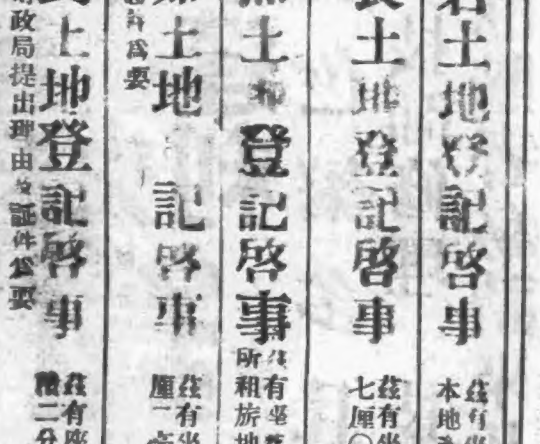 土地登記啓事
茲有坐
本地
土地登記啓事
茲有坐
七厘〇
土地登記啓事
茲有坐
所租旅地
土地 記啓事
茲有坐
厘一
為要
土地登記啓事
茲有座
二分
政局提出理由及証件為要